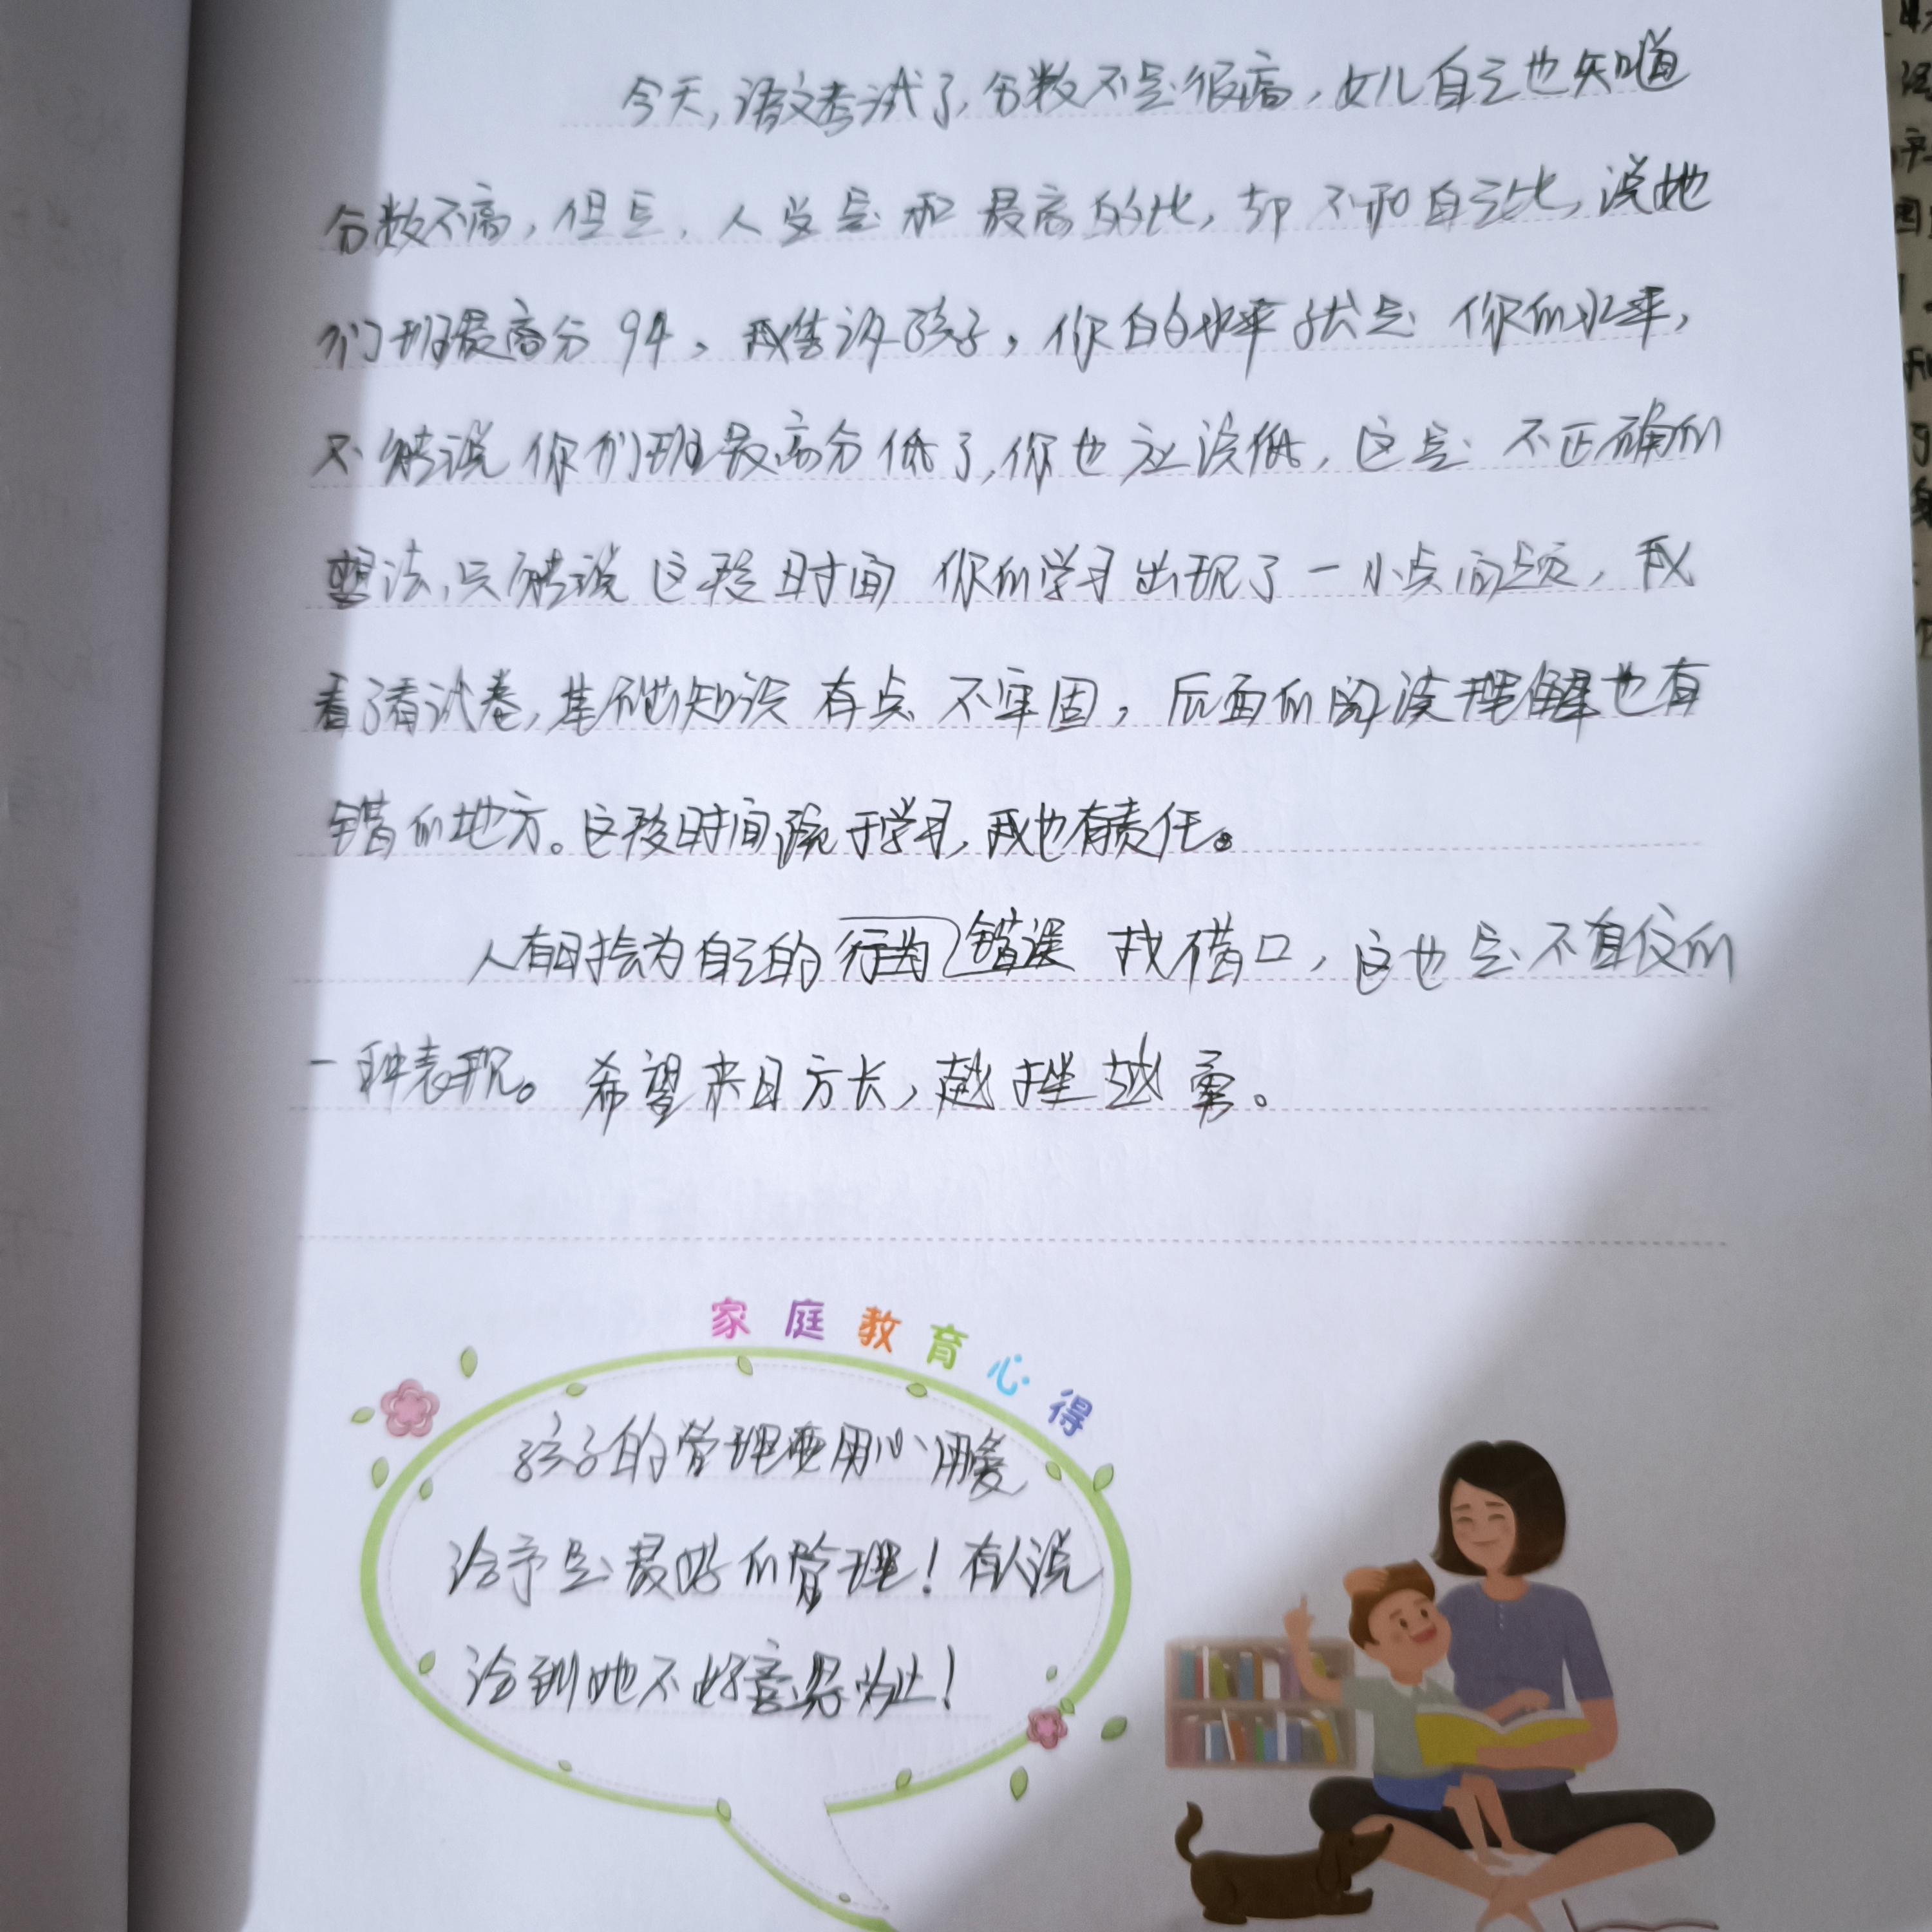 今天,语文考试了,分数不是很高,女儿自己也知道
分数不高,但是、人总是和最高的比,却不和自己比,说她
们班最高分94,我告诉孩子,你的水平就是你的水平,
不能说你们班最高分低了,你也应该低,这是不正确的
想法,只能说这段时间你的学习出现了一小点问题,我
看了看试卷,基础知识有点不牢固,后面的阅读理解也有
错的地方。这段时间疏于学习,我也有责任。
人有时会为自己的行为错误找借口,这也是不自信的
一种表现。希望来日方长,越挫越勇。
家庭教育心得
孩子的管理要用心用爱
给予是最好的管理!有人说
给到她不好意思为止!